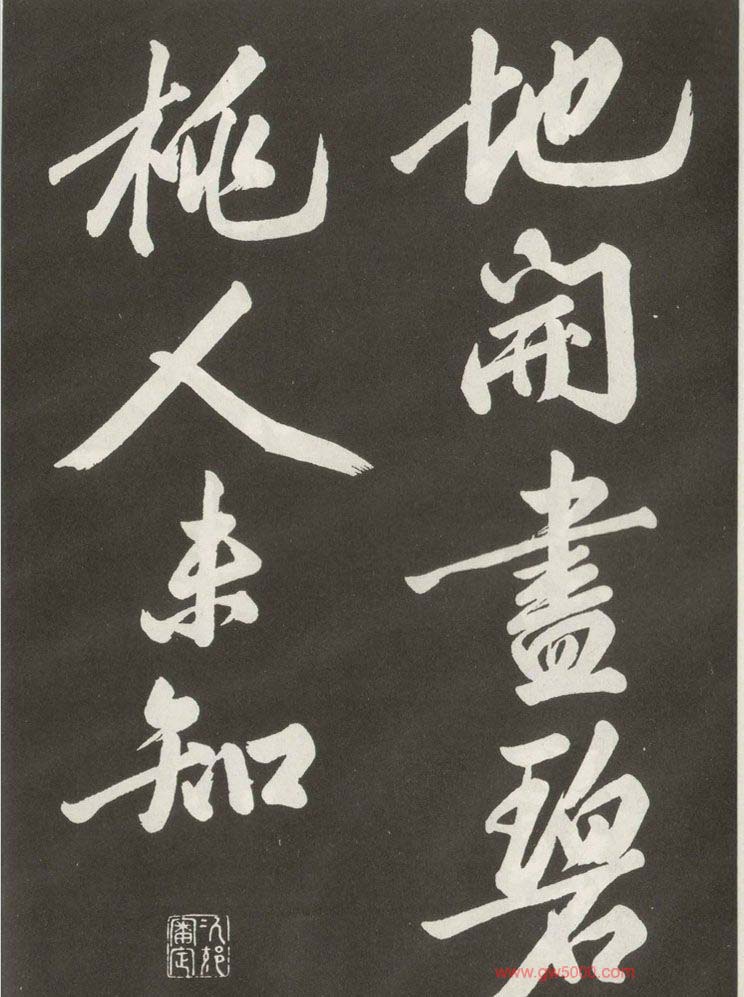 地開盡碧
桃人未知
www.gw5000.com